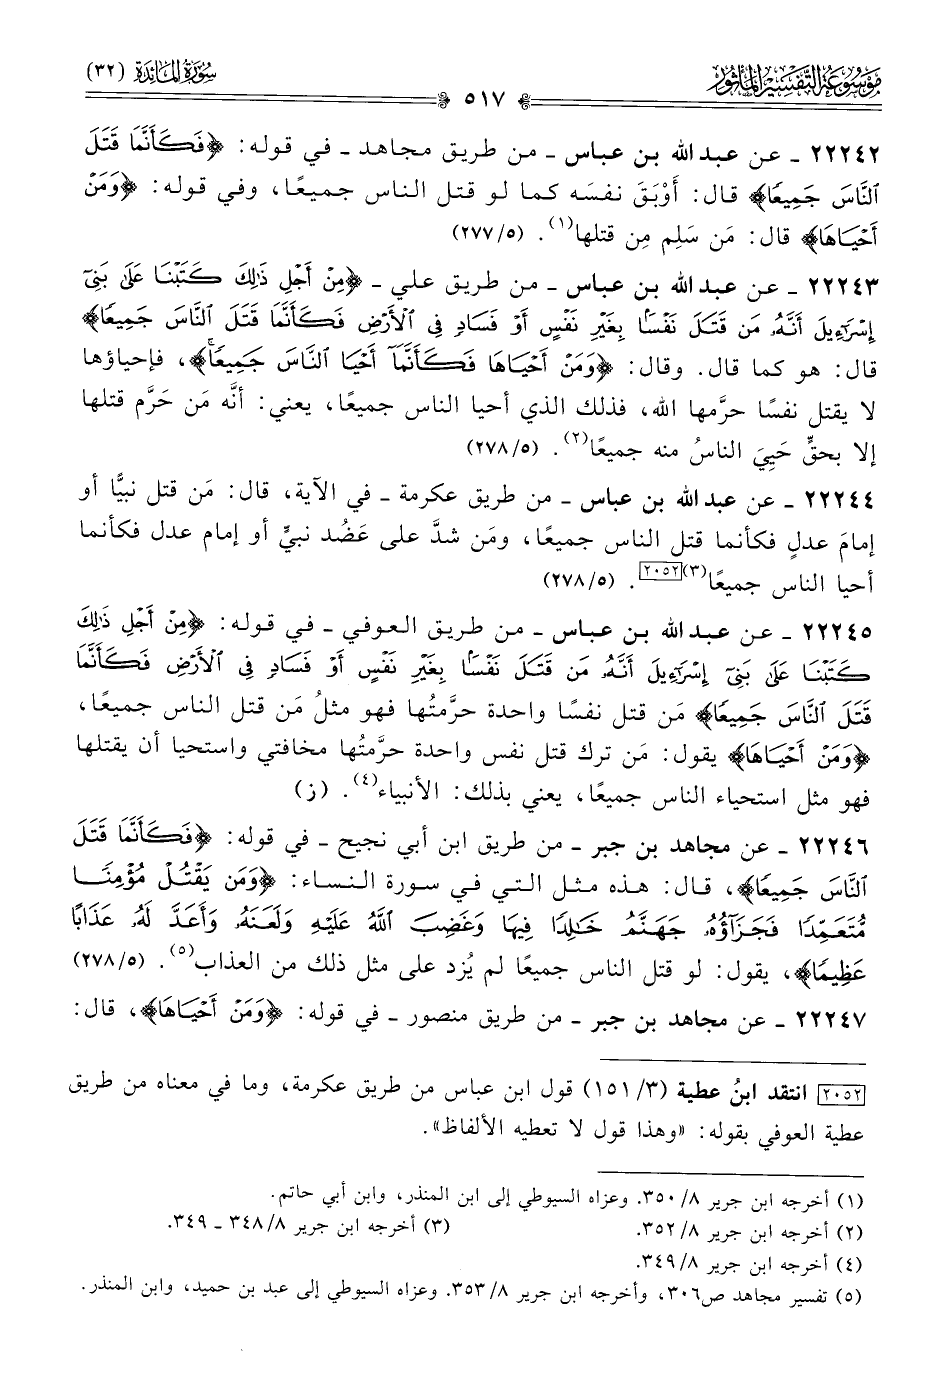 مَوْسُوعَة التَّفْسِيْر المَأثُور
سُورَةُ المَائدَة (٣٢)
٥١٧
٢٢٢٤٢ ـ عن عبد الله بن عباس ـ من طريق مجاهد ـ في قوله: ﴿فَكَأَنَّمَا قَتَلَ
ٱلنَّاسَ جَمِيعًا﴾ قال: أَوْبَقَ نفسَه كما لو قتل الناس جميعًا، وفي قوله: ﴿وَمَنْ
أَحْيَاهَا﴾ قال: مَن سَلِم مِن قتلها(١). (٥/ ٢٧٧)
٢٢٢٤٣ ـ عن عبد الله بن عباس ـ من طريق علي ـ ﴿مِنْ أَجْلِ ذَٰلِكَ كَتَبْنَا عَلَىٰ بَنِىٓ
إِسْرَٰٓءِيلَ أَنَّهُۥ مَن قَتَلَ نَفْسًۢا بِغَيْرِ نَفْسٍ أَوْ فَسَادٍ فِى ٱلْأَرْضِ فَكَأَنَّمَا قَتَلَ ٱلنَّاسَ جَمِيعًا﴾
قال: هو كما قال. وقال: ﴿وَمَنْ أَحْيَاهَا فَكَأَنَّمَآ أَحْيَا ٱلنَّاسَ جَمِيعًاۚ﴾، فإحياؤها
لا يقتل نفسًا حرَّمها الله، فذلك الذي أحيا الناس جميعًا، يعني: أنَّه مَن حَرَّم قتلها
إلا بحقٍّ حَيِيَ الناسُ منه جميعًا(٢). (٥/ ٢٧٨)
٢٢٢٤٤ ـ عن عبد الله بن عباس ـ من طريق عكرمة ـ في الآية، قال: مَن قتل نبيًّا أو
إمامَ عدلٍ فكأنما قتل الناس جميعًا، ومَن شدَّ على عَضُد نبيٍّ أو إمام عدل فكأنما
أحيا الناس جميعًا(٣)[٢٠٥٢]. (٥/ ٢٧٨)
٢٢٢٤٥ ـ عن عبد الله بن عباس ـ من طريق العوفي ـ في قوله: ﴿مِنْ أَجْلِ ذَٰلِكَ
كَتَبْنَا عَلَىٰ بَنِىٓ إِسْرَٰٓءِيلَ أَنَّهُۥ مَن قَتَلَ نَفْسًۢا بِغَيْرِ نَفْسٍ أَوْ فَسَادٍ فِى ٱلْأَرْضِ فَكَأَنَّمَا
قَتَلَ ٱلنَّاسَ جَمِيعًا﴾ مَن قتل نفسًا واحدة حرَّمتُها فهو مثلُ مَن قتل الناس جميعًا،
﴿وَمَنْ أَحْيَاهَا﴾ يقول: مَن ترك قتل نفس واحدة حرَّمتُها مخافتي واستحيا أن يقتلها
فهو مثل استحياء الناس جميعًا، يعني بذلك: الأنبياء(٤). (ز)
٢٢٢٤٦ ـ عن مجاهد بن جبر ـ من طريق ابن أبي نجيح ـ في قوله: ﴿فَكَأَنَّمَا قَتَلَ
ٱلنَّاسَ جَمِيعًا﴾، قال: هذه مثل التي في سورة النساء: ﴿وَمَن يَقْتُلْ مُؤْمِنًا
مُّتَعَمِّدًا فَجَزَآؤُهُۥ جَهَنَّمُ خَٰلِدًا فِيهَا وَغَضِبَ ٱللَّهُ عَلَيْهِ وَلَعَنَهُۥ وَأَعَدَّ لَهُۥ عَذَابًا
عَظِيمًا﴾، يقول: لو قتل الناس جميعًا لم يُزد على مثل ذلك من العذاب(٥). (٥/ ٢٧٨)
٢٢٢٤٧ ـ عن مجاهد بن جبر ـ من طريق منصور ـ في قوله: ﴿وَمَنْ أَحْيَاهَا﴾، قال:
[٢٠٥٢] انتقد ابنُ عطية (٣/ ١٥١) قول ابن عباس من طريق عكرمة، وما في معناه من طريق
عطية العوفي بقوله: «وهذا قول لا تعطيه الألفاظ».
(١) أخرجه ابن جرير ٨/ ٣٥٠. وعزاه السيوطي إلى ابن المنذر، وابن أبي حاتم.
(٢) أخرجه ابن جرير ٨/ ٣٥٢. (٣) أخرجه ابن جرير ٨/ ٣٤٨ ـ ٣٤٩.
(٤) أخرجه ابن جرير ٨/ ٣٤٩.
(٥) تفسير مجاهد ص٣٠٦، وأخرجه ابن جرير ٨/ ٣٥٣. وعزاه السيوطي إلى عبد بن حميد، وابن المنذر.